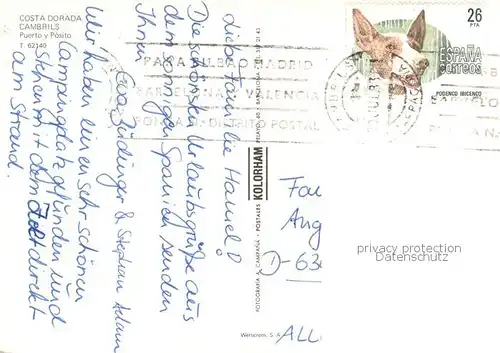 COSTA DORADA
CAMBRILS
Puerto y Pósito
T. 62140
Liebe Familie Hamel!
Die schönsten Urlaubsgrüße aus
dem sonnigen Spanien senden
Ihnen
Eva Züdinger & Stephan Adam
Wir haben einen sehr schönen
Campingplatz gefunden und
stehen mit dem Zelt direkt
am Strand.
PARA BILBAO MADRID
BARCELONA VALENCIA
PONGA Nº DISTRITO POSTAL
26
PTA
ESPAÑA
correos
PODENCO IBICENCO
KOLORHAM
FOTOGRAFIA A. CAMPAÑA - POSTALES
Fa
Ang
D-63
ALL
privacy protection
Datenschutz